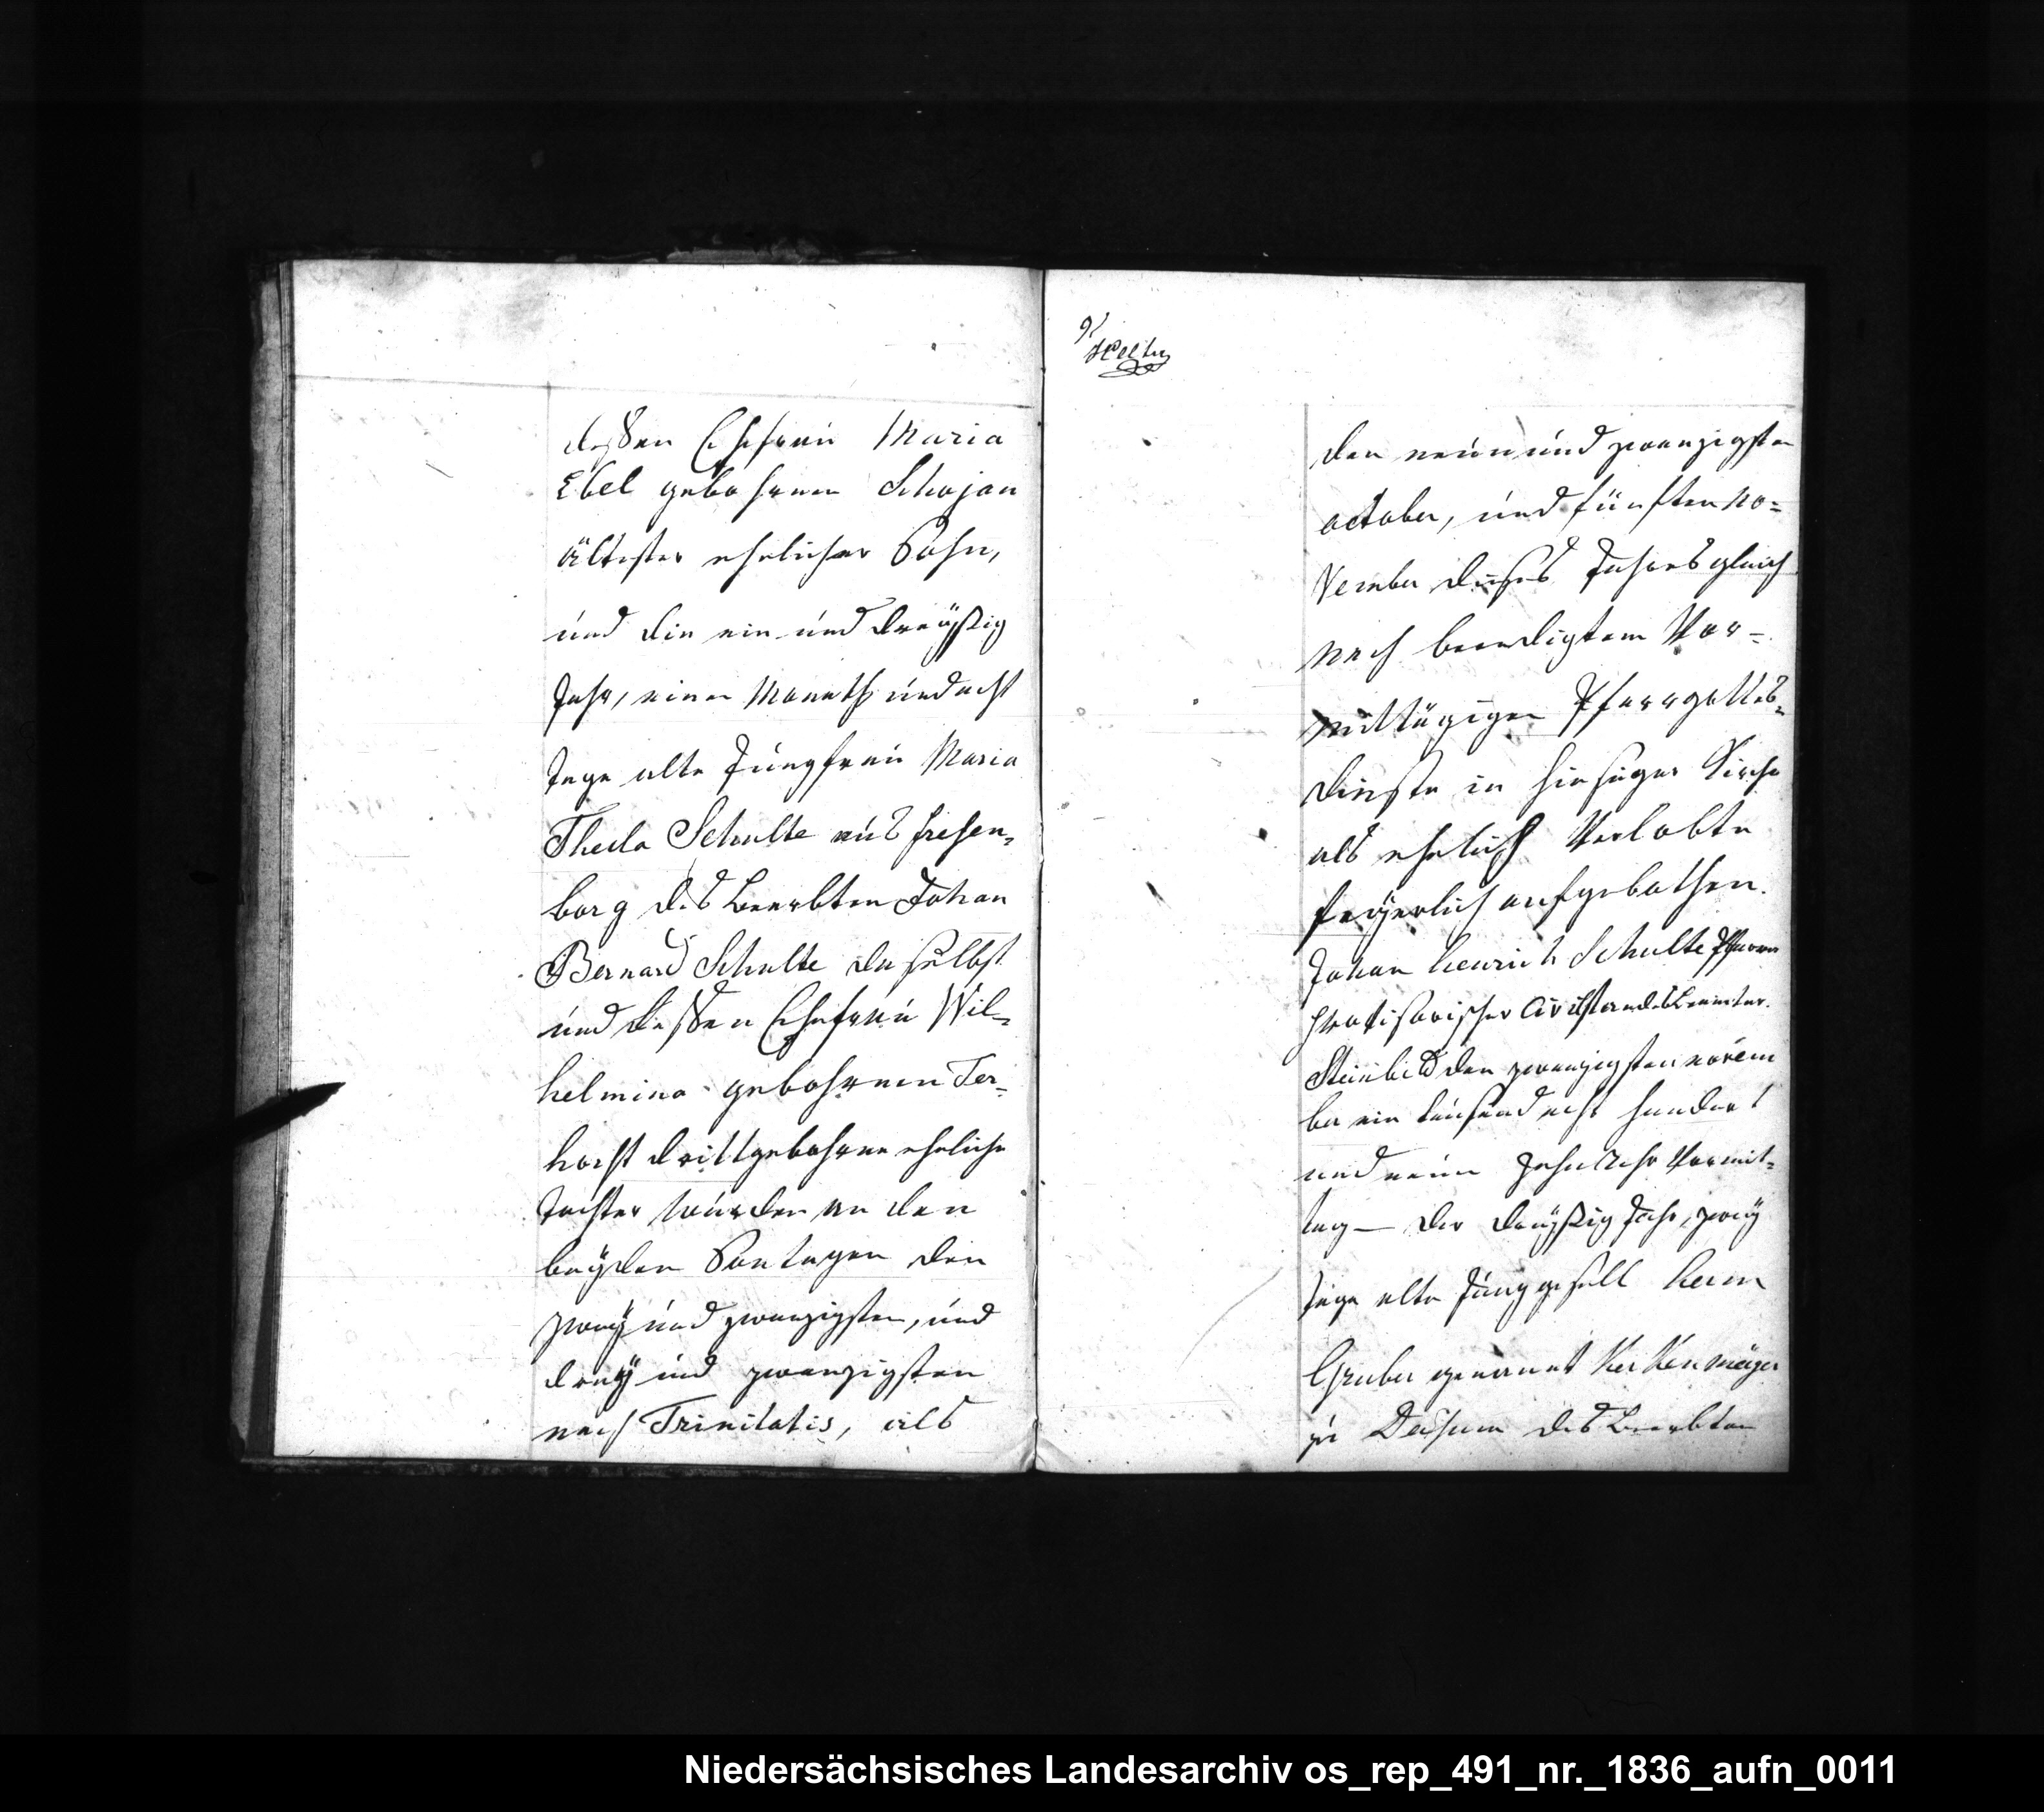 deßen Ehefrau Maria
Ebel gebohrnen Schajan
ältester ehelicher Sohn,
und die ein und dreÿßig
Jahr, einen Monath und acht
Tage alte Jungfrau Maria
Thecla Schulte aus fresen„
borg des Beerbten Johan
Bernard Schulte daselbst
und deßen Ehefrau Wil„
helmina gebohrnen Ter„
horst drittgebohrne eheliche
Tochter wurden an den
beÿden Sontagen den
zweÿ und zwanzigsten, und
dreÿ und zwanzigsten
nach Trinitatis, als
9
den neun und zwanzigsten
october, und fünften no=
vember dieses Jahres gleich
nach beendigtem Vor=
mittägigen Pfarrgottes„
dienste in hiesiger Kirche
als ehelich Verlobte
feÿerlich aufgebothen.
Johan henrich Schulte Pfarrer
provisorischer Civilstandesbeamter.
Steinbild den zwanzigsten novem
ber ein tausend acht hundert
und neun zehn Uhr Vormit„
tag — der dreÿßig Jahr, zweÿ
Tage alte Junggesell herm
Gruber genannt Kerkenmeÿer
zu Dersum des Beerbten
Niedersächsisches Landesarchiv os_rep_491_nr._1836_aufn_0011